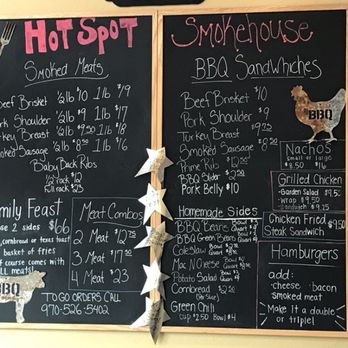 HOT SPOT
Smoked Meats
Beef Brisket ½lb $10 1lb $19
Pork Shoulder ½lb $9 1lb $17
Turkey Breast ½lb $9.50 1lb $18
Smoked Sausage ½lb $8.50 1lb $16
Baby Back Ribs
full rack $23
Family Feast
2 sides $66
cornbread or texas toast
basket of fries
of course comes with
ALL meats!
BBQ
Meat Combos
2 Meat $12.75
3 Meat $17
4 Meat $23
TO GO ORDERS CALL
970-526-5402
Smokehouse
BBQ Sandwhiches
Beef Brisket $10
Pork Shoulder $9
Turkey Breast
Smoked Sausage
Prime Rib
BBQ Slider $2
Pork Belly $10
Homemade Sides
BBQ Beans
BBQ Green Beans
Coleslaw
Mac N Cheese
Potato Salad
Cornbread
Green Chili
cup $2.50 Bowl $4
BBQ
Nachos
small or large
$8.50 $16
Grilled Chicken
Garden Salad $9.50
wrap $9.50
Sandwich $9.15
Chicken Fried $9.50
Steak Sandwich
Hamburgers
add:
-cheese -bacon
smoked meat
Make it a double
or triple!